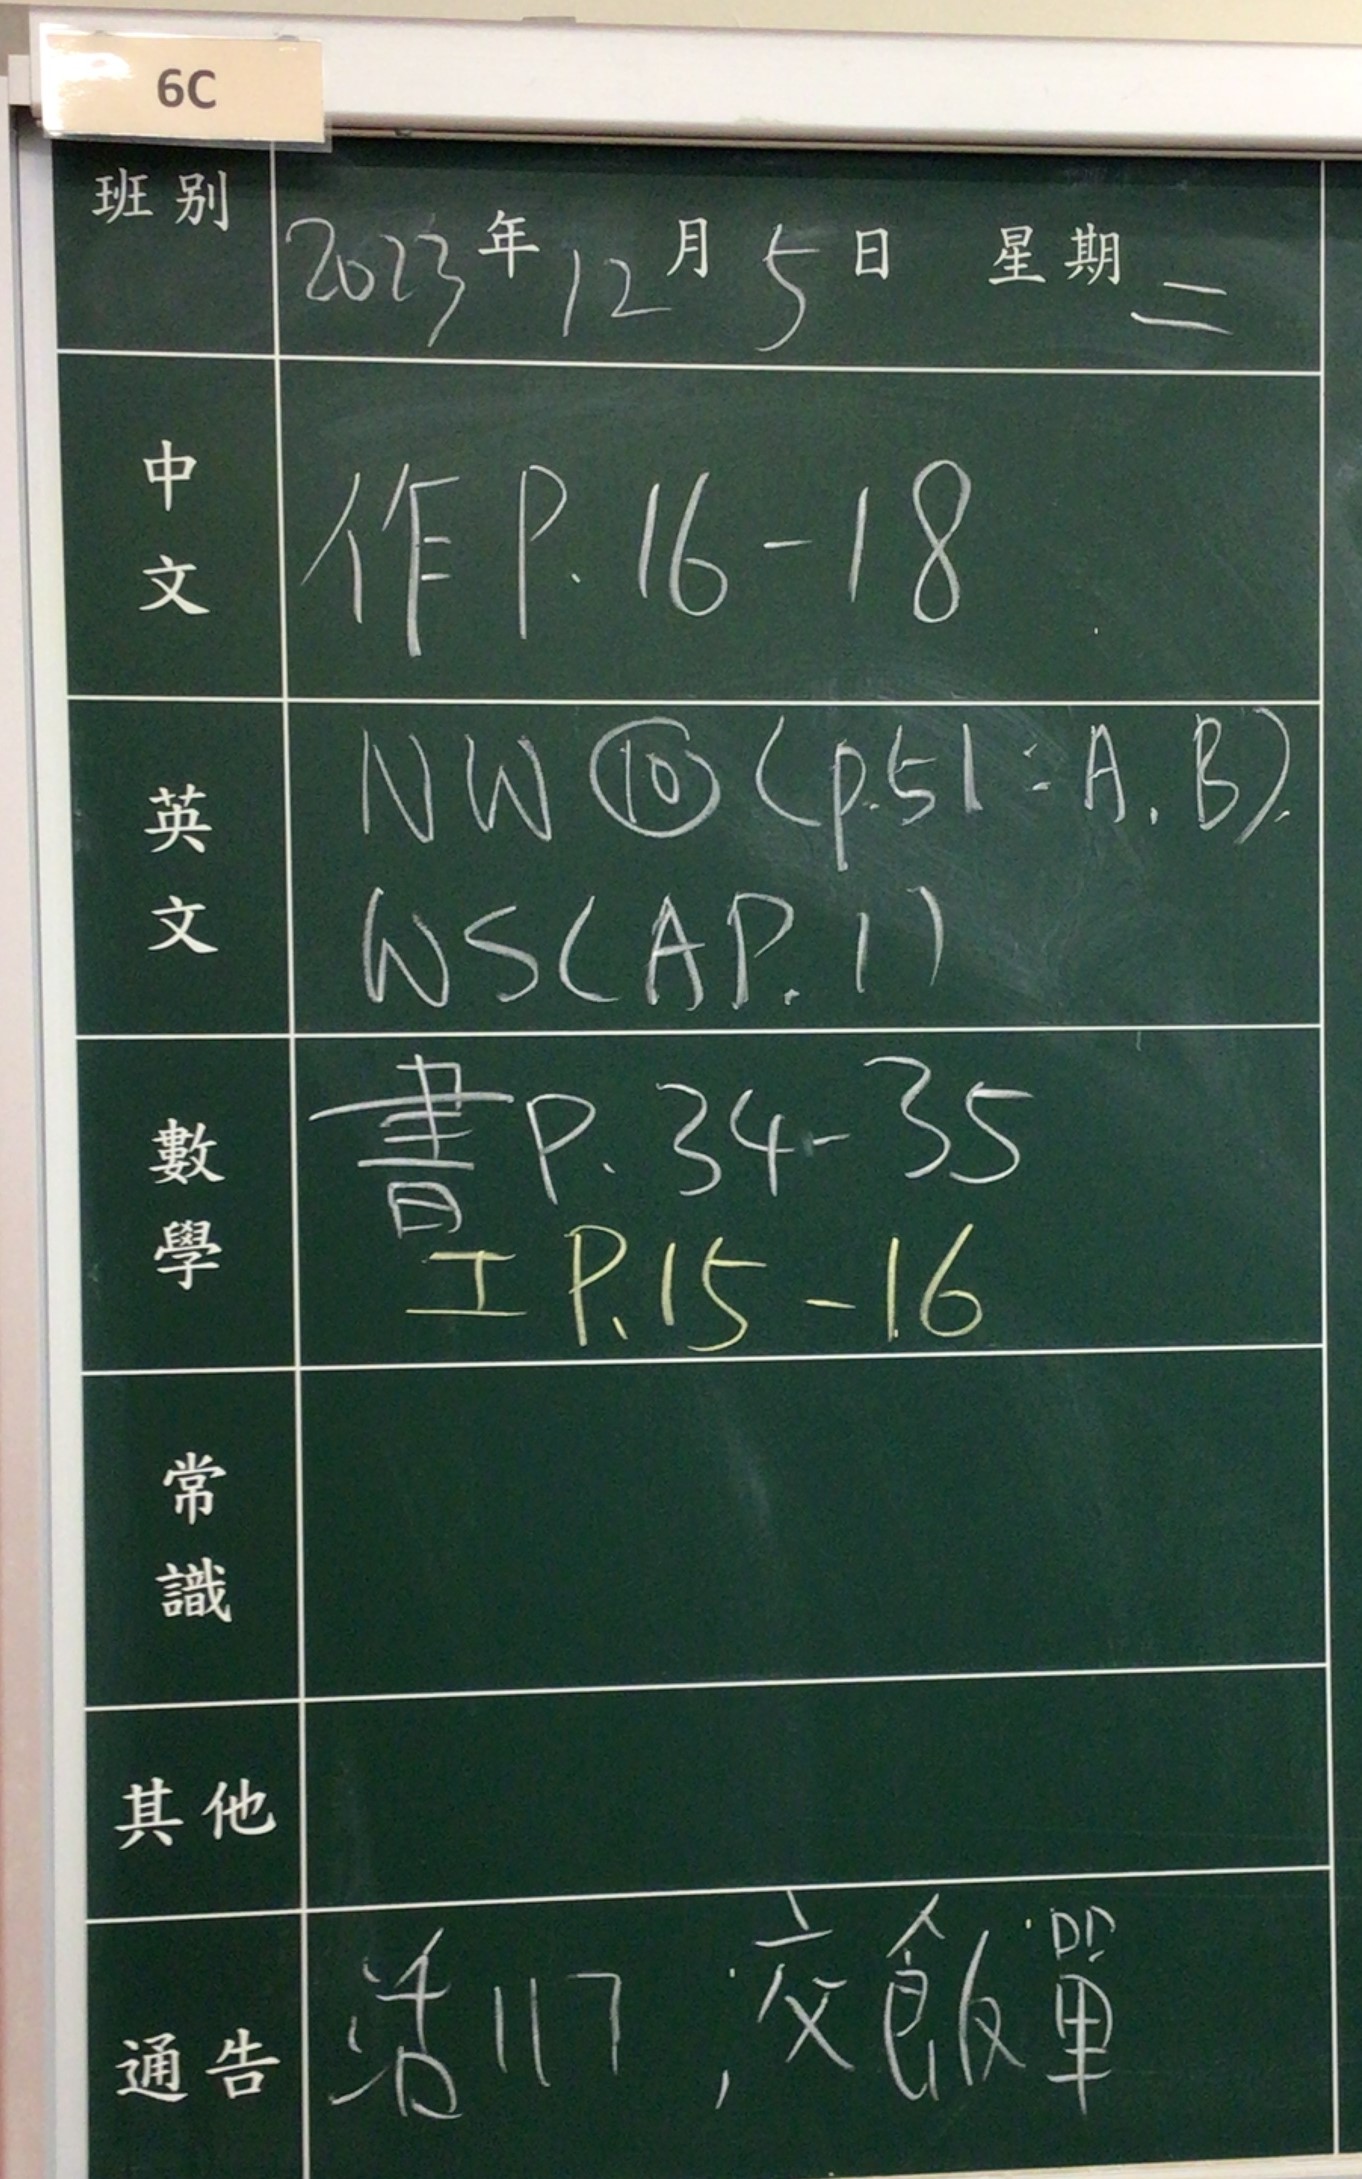 6C
班別
2023年12月5日 星期二
中文
作 P. 16-18
英文
NW ⑩ (p.51 : A. B).
WS(AP. 1)
數學
書 P. 34-35
工 P. 15-16
常識
其他
通告
活117 , 交飯單